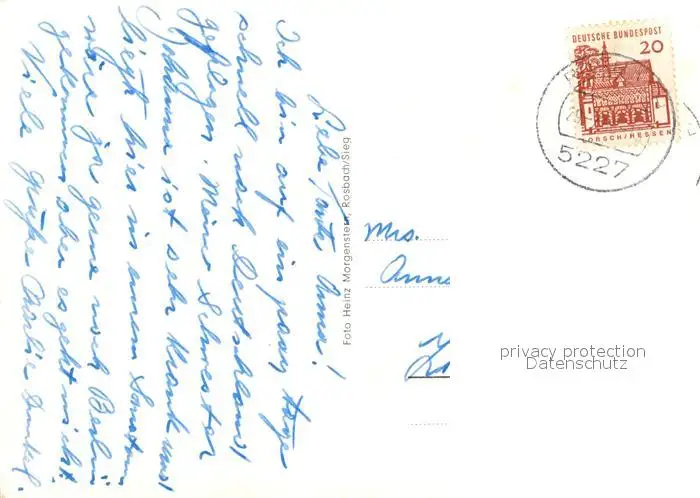 Liebe, gute Anna!
Ich bin auf ein paar Tage
schnell nach Deutschland
geflogen. Meine Schwester
Johanna ist sehr krank und
liegt hier in einem
wäre ja gerne nach Berlin
gekommen aber es geht nicht
Viele Grüße
Foto Heinz Morgenstern, Rosbach/Sieg
DEUTSCHE BUNDESPOST
20
LORSCH/HESSEN
5227
Mrs.
Anna
privacy protection
Datenschutz